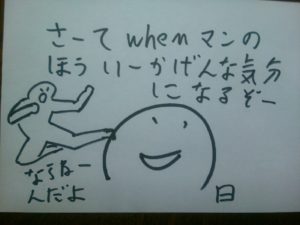 さーて whenマンの
ほう いーかげんな気分
になるぞー
ならねー
んだよ
日